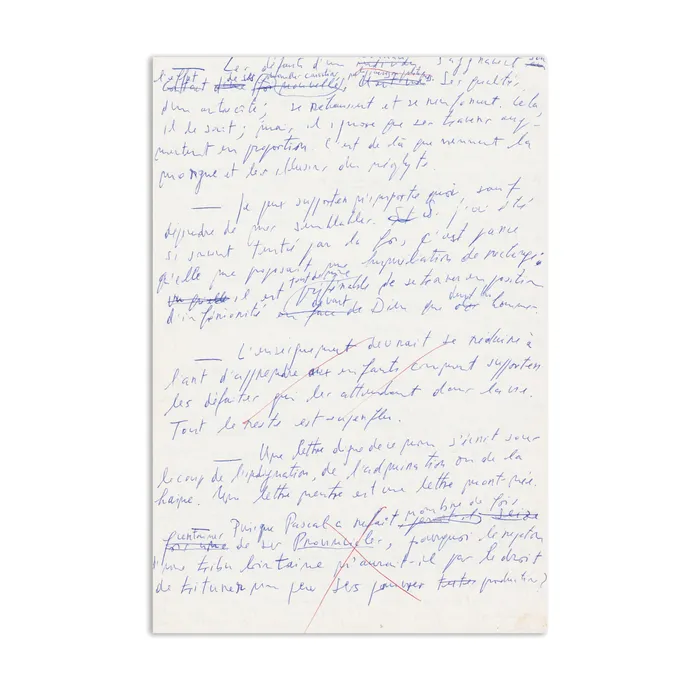 — Les défauts d'un s'aggravent
l'effet de ses
se renforcent. Cela,
il le sait; mais, il ignore que ses travers aug-
mentent en proportion. C'est de là que viennent la
morgue et les illusions du néophyte.
— Je peux supporter n'importe quoi sauf
dépendre de mes semblables. Et si j'ai été
si souvent tenté par la foi, c'est parce
qu'elle me proposait une humiliation de rechange:
il est tout de même préférable de se trouver en position
d'infériorité devant Dieu que devant un homme.
— L'enseignement devrait se réduire à
l'art d'apprendre aux enfants comment supporter
les défaites qui les attendent dans la vie.
Tout le reste est superflu.
— Une lettre digne de ce nom s'écrit sous
le coup de l'indignation, de l'admiration ou de la
haine. Une lettre neutre est une lettre mort-née.
— Puisque Pascal a refait nombre de fois
de ses Provinciales, pourquoi le rejeton
d'une tribu lointaine n'aurait-il pas le droit
de triturer un peu ses pauvres productions?